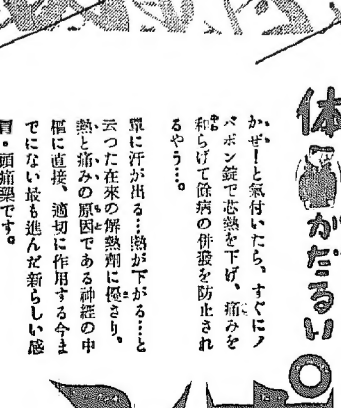 体がだるい
かぜ！と氣付いたら、すぐにノ
バポン錠で芯熱を下げ、痛みを
和らげて餘病の併發を防止され
るやう…。
單に汗が出る…熱が下がる……と
云つた在來の解熱劑に優さり、
熱と痛みの原因である神經の中
樞に直接、適切に作用する今ま
でにない最も進んだ新らしい感
冒・頭痛藥です。